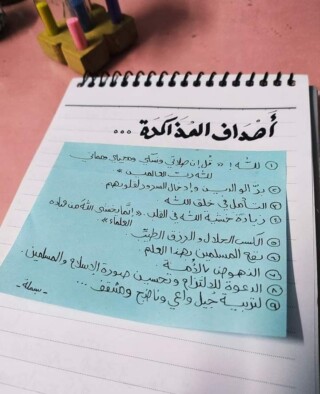 أهداف المذاكرة ...
① لله! « قل إن صلاتي ونسكي ومحياي ومماتي
لله رب العالمين »
② برّ الوالدين وإدخال السرور لقلوبهم
③ التأمل في خلق الله
④ زيادة خشية الله في القلب. « إنّما يخشى اللهَ من عباده
العلماء ».
⑤ الكسب الحلال والرزق الطيّب
٦ نفع المسلمين بهذا العلم.
٧ النهوض بالأمة.
٨ الدعوة للالتزام وتحسين صورة الإسلام والمسلمين.
٩ لتربية جيل واعي وناضج ومثقف ...
- بسملة -